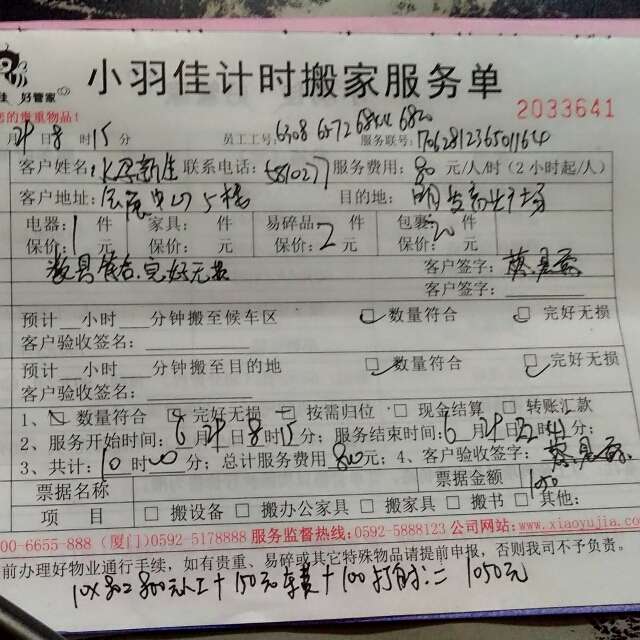 好管家
小羽佳计时搬家服务单
2033641
您的贵重物品!
月21日8时15分 员工工号: 服务联号:
客户姓名: 联系电话:5810277 服务费用:80元/人/时(2小时起/人)
客户地址:会展中心5栋 目的地:明发商业广场
电器:1件 家具: 件 易碎品 件 包裹: 件
保价: 元 保价: 元 保价:2元 保价:20元
数量符合.完好无损 客户签字:
客户签字:
预计__小时___分钟搬至候车区 数量符合 完好无损
客户验收签名:
预计__小时___分钟搬至目的地 数量符合 完好无损
客户验收签名:
1、数量符合 完好无损 按需归位 现金结算 转账汇款
2、服务开始时间:6月21日8时15分; 服务结束时间:6月21日22时41分;
3、共计:10时00分; 总计服务费用800元; 4、客户验收签字:
票据名称 票据金额 1050
项 目 搬设备 搬办公家具 搬家具 搬书 其他:
00-6655-888 (厦门)0592-5178888 服务监督热线:0592-5888123 公司网站:www.xiaoyujia.com
前办理好物业通行手续,如有贵重、易碎或其它特殊物品请提前申报,否则我司不予负责。
10×80=800元人工+150元车费+100打的=1050元